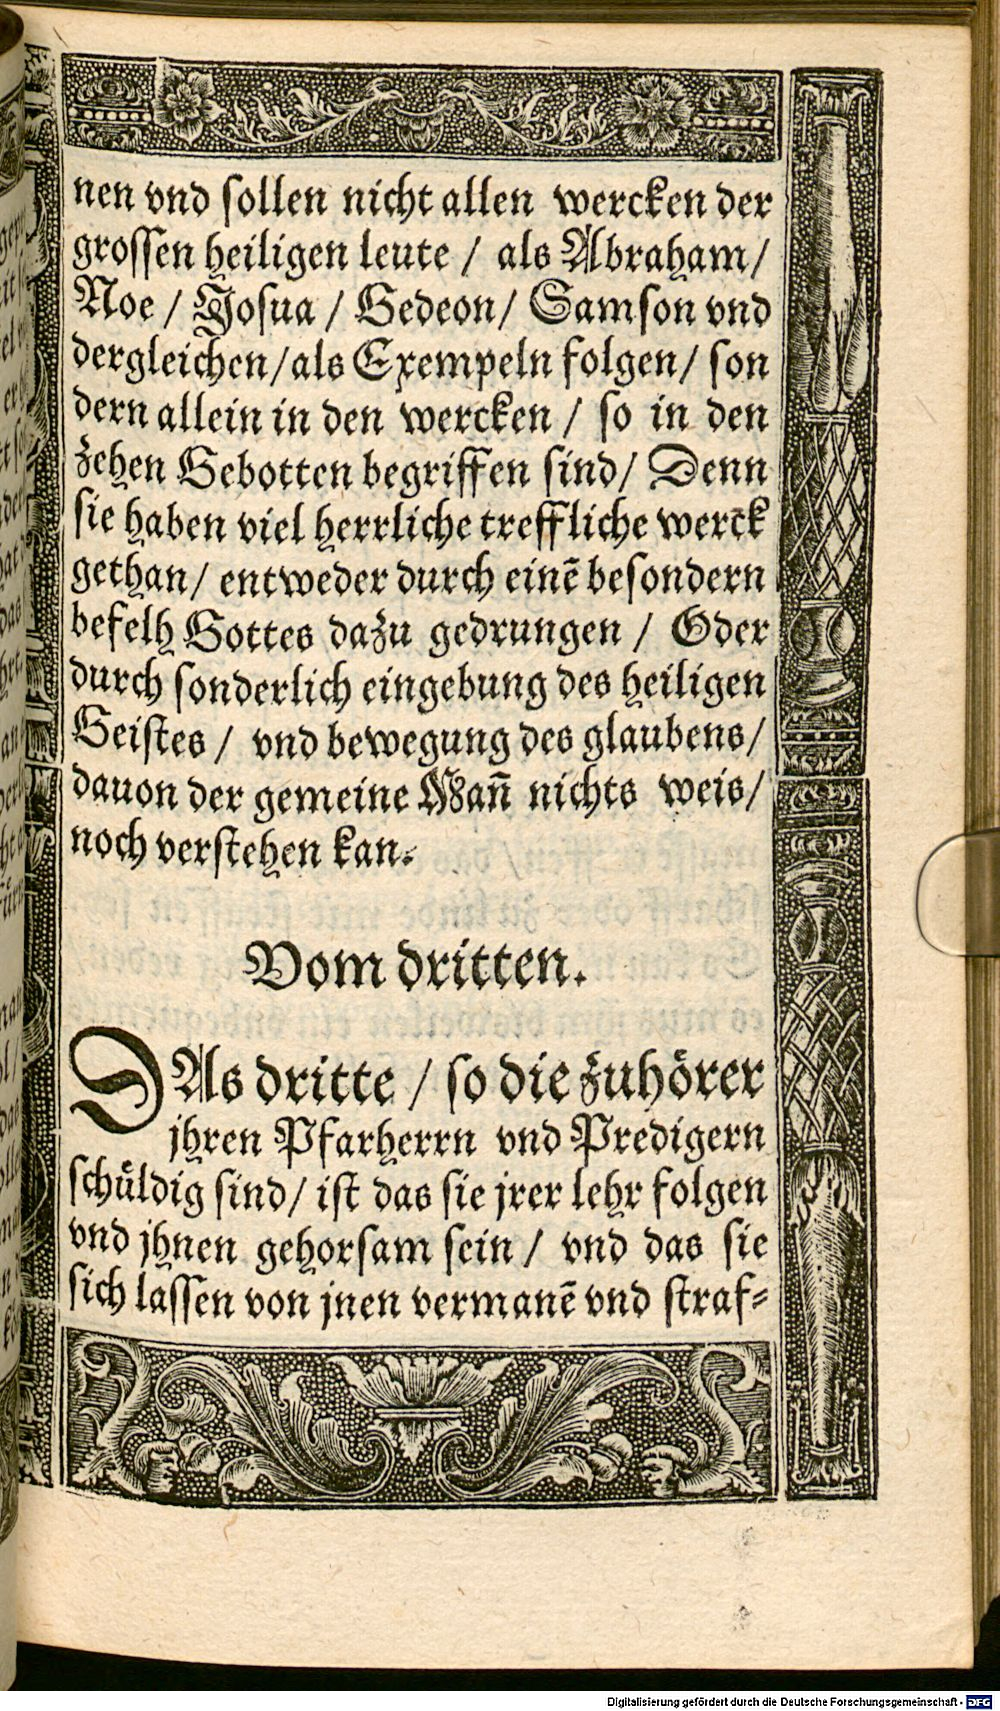 nen vnd sollen nicht allen wercken der
grossen heiligen leute / als Abraham/
Noe / Josua / Gedeon/ Samson vnd
dergleichen/als Exempeln folgen/ son
dern allein in den wercken / so in den
zehen Gebotten begriffen sind/ Denn
sie haben viel herrliche treffliche werck
gethan/ entweder durch einē besondern
befelh Gottes dazu gedrungen / Oder
durch sonderlich eingebung des heiligen
Geistes / vnd bewegung des glaubens/
dauon der gemeine Mañ nichts weis/
noch verstehen kan.
Vom dritten.
DAs dritte / so die zuhörer
jhren Pfarherrn vnd Predigern
schüldig sind/ ist das sie jrer lehr folgen
vnd jhnen gehorsam sein / vnd das sie
sich lassen von jnen vermanē vnd straf=
Digitalisierung gefördert durch die Deutsche Forschungsgemeinschaft - DFG